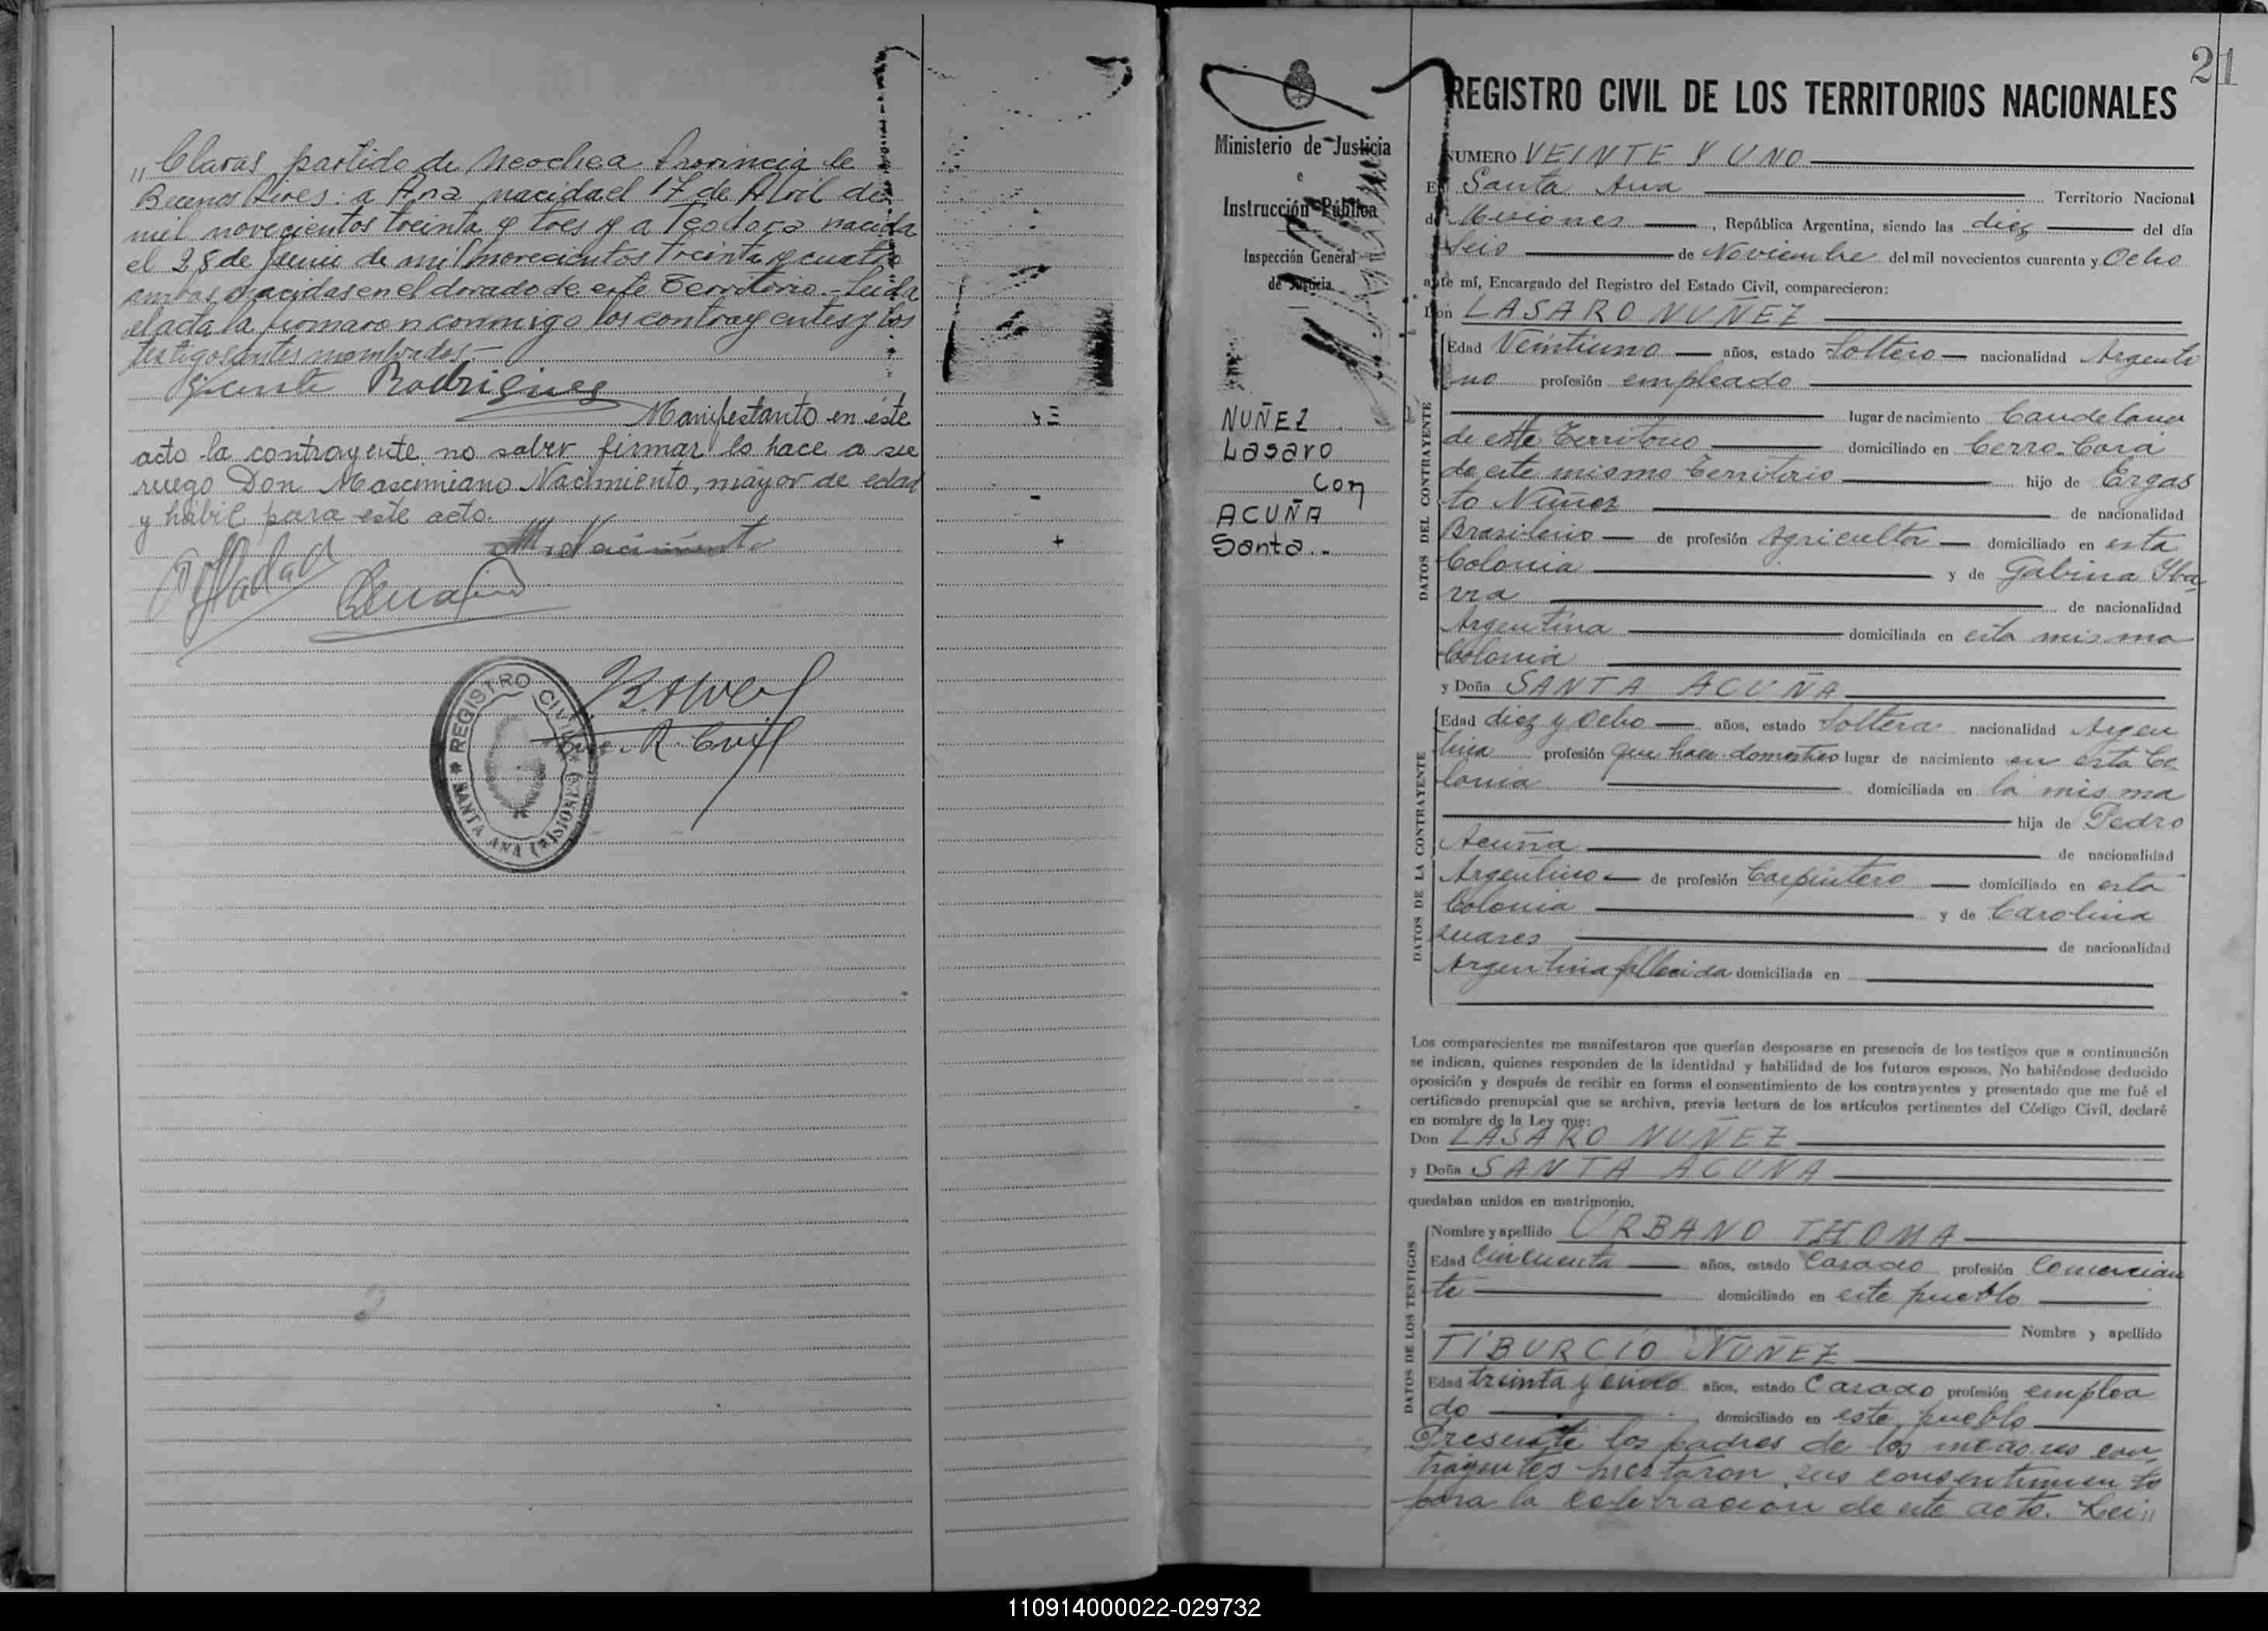 „ Claras partido de Neochea Provincia de
Buenos Aires: a Ana nacida el 17 de Abril de
mil novecientos treinta y tres y a Teodora nacida
el 28 de Junio de mil novecientos treinta y cuatro
ambas nacidas en el dorado de este Territorio.- Leida
el acta la firmaron conmigo los contrayentes y los
testigos antes nombrados.-
Rodrigues
Manifestanto en éste
acto la contrayente no saber firmar lo hace a su
ruego Don Mascimiano Nacimiento, mayor de edad
y habil para este acto.
M. Nacimiento
R. Civil
* REGISTRO CIVIL *
SANTA ANA (MISIONES)
21
Ministerio de Justicia
e
Instrucción Pública
Inspección General
de Justicia
NUÑEZ
Lasaro
Con
ACUÑA
Santa..
REGISTRO CIVIL DE LOS TERRITORIOS NACIONALES
NUMERO VEINTE Y UNO
En Santa Ana Territorio Nacional
de Misiones, República Argentina, siendo las diez del día
seis de Noviembre del mil novecientos cuarenta y Ocho
ante mí, Encargado del Registro del Estado Civil, comparecieron:
Don LASARO NUÑEZ
DATOS DEL CONTRAYENTE
Edad Veintiuno años, estado Soltero nacionalidad Argenti
no profesión empleado
lugar de nacimiento Candelaria
de este Territorio domiciliado en Cerro-Corá
de este mismo Territorio hijo de Ergas
to Nuñez de nacionalidad
Brasileño de profesión Agricultor domiciliado en esta
Colonia y de Gabina Yba-
rra de nacionalidad
Argentina domiciliada en esta misma
Colonia
y Doña SANTA ACUÑA
DATOS DE LA CONTRAYENTE
Edad diez y Ocho años, estado Soltera nacionalidad Argen
tina profesión que hacer domestico lugar de nacimiento en esta Co
lonia domiciliada en la misma
hija de Pedro
Acuña de nacionalidad
Argentino de profesión Carpintero domiciliado en esta
Colonia y de Carolina
suares de nacionalidad
Argentina fallecida domiciliada en
Los comparecientes me manifestaron que querían desposarse en presencia de los testigos que a continuación
se indican, quienes responden de la identidad y habilidad de los futuros esposos. No habiéndose deducido
oposición y después de recibir en forma el consentimiento de los contrayentes y presentado que me fué el
certificado prenupcial que se archiva, previa lectura de los artículos pertinentes del Código Civil, declaré
en nombre de la Ley que:
Don LASARO NUÑEZ
y Doña SANTA ACUÑA
quedaban unidos en matrimonio.
DATOS DE LOS TESTIGOS
Nombre y apellido URBANO THOMA
Edad Cincuenta años, estado Casado profesión Comercian
te domiciliado en este pueblo
Nombre y apellido
TIBURCIO NUÑEZ
Edad treinta y cinco años, estado Casado profesión emplea
do domiciliado en este pueblo
Presente los padres de los menores con-
trayentes prestaron sus consentimiento
para la celebracion de este acto. Lei„
110914000022-029732